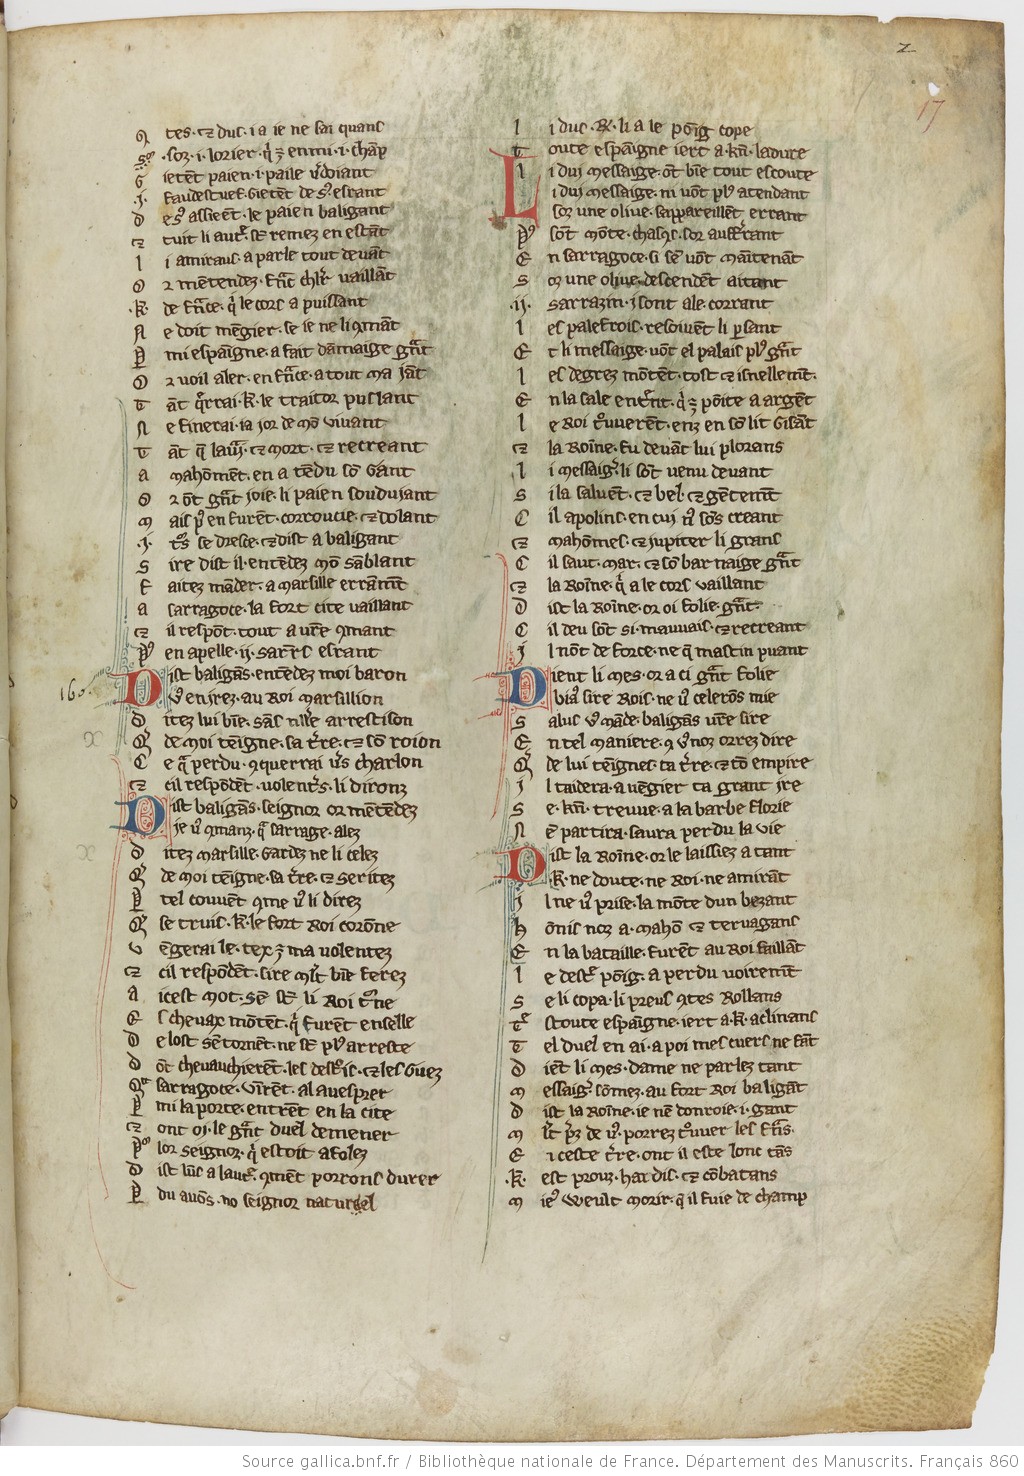 2
17
Q tes · ⁊ dus · i a ie ne sai quans
So͛ · soz · i · lorier · q̍ ē enmi · i · chāp
G ietēt paien · i · paile v̾doiant
· j · faudestuef · Gietēt de s᷒ esrant
D es᷒ assieēt · le paien baligant
⁊ tuit li aut̾ · sōt remez en estāt
l i amiraus · a parle tout deuāt
O r mētendez · frāc chl̾r vaillāt
· K · de frāce · q̍ le cors a puissant
N e doit mēgier · se ie ne li ꝯmāt
P̱ mi espaīgne · a fait dāmaige grāt
O r voil aler · en frāce · a tout ma jāt
T āt q̄rrai · K · le traitor puslant
N e finerai · ia jor de mō viuant
T āt q̄ laur̄ · ⁊ mort · ⁊ recreant
a mahōmēt · en a tēdu sō gant
O r ōt grāt joie · li paien soudujant
m ais p᷒ en furēt · corroucie · ⁊ dolant
· j · t̾s se drece · ⁊ dist a baligant
S ire dist il · entēdez mō sāblant
F aitez māder · a marsille errāmt̄
a sarragoce · la fort cite vaillant
⁊ il respōt · tout a vr̄e ꝯmant
P᷒ en apelle · ij · sarr̄s esrant
D ist baligās · entēdez moi baron
160 · V᷒ en jrez · au Roi marsillion
D itez lui bīe · sās nlle arrestison
Q̄ de moi tēigne · sa t̾re · ⁊ sō roion
C e q̄ perdu · ꝯquerrai v̾s charlon
⁊ cil respōdēt · volent̾s · li dironz
D ist baligās · seignor or mētēdez
je v᷒ ꝯmanz · q̄ sarrage · alez
D itez marsille · gardez ne li celez
Q̄ de moi tēigne · sa t̾re · ⁊ seritez
P̱ tel couuēt ꝯme v᷒ li direz
Q̄ se truis · K · le fort Roi corōne
v ēgerai le · tex ē ma volentez
⁊ cil respōdēt · sire ml̄t bīe ferez
a icest mot · sē sōt li Roi t̾ne
E s cheuax mōtēt · q̍ furēt enselle
D e lost sē tornēt · ne sōt pl᷒ arreste
D ōt cheuauchierēt · les dest̾is · ⁊ les guez
Q̄ sarragoce · vīrēt · al auesprer
P̱ mi la porte · entrēt en la cite
⁊ ont oi · le grāt duel demener
P᷒ lor seignor · q̍ estoit afolez
D ist lūs a laut̾ · ꝯmēt porrons durer
P̱ du auōs · no seignor naturel
l i duc · R · li a le poīg cope
T oute espaīgne iert a · kl̄ · ladure
L i dui messaige · ōt bīe tout escoute
l i dui messaige · ni vōt pl᷒ atendant
Soz une oliue · sappareillēt errant
P᷒ sōt mōte · chasc̄s · sor auferrant
E n sarragoce · si sē vōt maītenāt
S oz une oliue · descendēt aitant
· ij · sarrazin · j sont ale · corrant
l es palefrois · resoiuēt li p̱sant
E t li messaige · vōt el palais pl᷒ grāt
l es degrez mōtēt · tost ⁊ isnellemt̄ ·
E n la sale entrēt · q̍ ē poīte a argēt
l e Roi t̾uuerēt · enz en sō lit gisāt
⁊ la Roīne · fu deuāt lui plorans
l i messaig̾ · li sōt venu deuant
S i la saluēt · ⁊ bel · ⁊ gētemt̄
C il apolins · en cui n᷒ sōs creant
⁊ mahōmes · ⁊ jupiter li grans
C il saut · mar · ⁊ sō barnaige grāt
⁊ la Roīne · q̍ a le cors vaillant
D ist la Roīne · or oi folie grāt ·
C il deu sōt · si mauuais · ⁊ recreant
J l nōt de force · ne q̄ mastin puant
D ient li mes · or a ci grāt folie
bia᷒ sire Rois · ne v᷒ celerōs mie
S alus v᷒ māde · baligās vr̄e sire
E n tel maniere · ꝯ v᷒ noz orrez dire
Q̄ de lui tēigneᷤ · ta t̾re · ⁊ tō empire
J l taidera · a vēgier ta grant jre
S e · kl̄ · treuue · a la barbe florie
N ē partira · saura perdu la vie
D ist la Roīne · or le laissiez a tant
· K · ne doute · ne Roi · ne amirāt
J l ne v᷒ prise · la mōte dun bezant
h ōnis noz a · mahō ⁊ teruagans
E n la bataille · furēt au Roi faillāt
l e dest̾ poīg · a perdu voiremt̄
S e li copa · li preus ꝯtes Rollans
T᷒ stoute espaīgne · iert a · K · aclinans
T el duel en ai · a poi mes cuers ne fāt
D iēt li mes · dame ne parlez tant
m essaig̾ sōmez · au fort Roi baligāt
D ist la Roīne · ie nē donroie · i · gant
m l̄t p̄z de v᷒ · porrez t̾uuer les frās ·
E n ceste t̾re · ont il este lonc tās
· K · est prouz · hardis · ⁊ cōbatans
m ie᷒ weult morir · q̄ il fuie de champ
Source gallica.bnf.fr / Bibliothèque nationale de France. Département des Manuscrits. Français 860